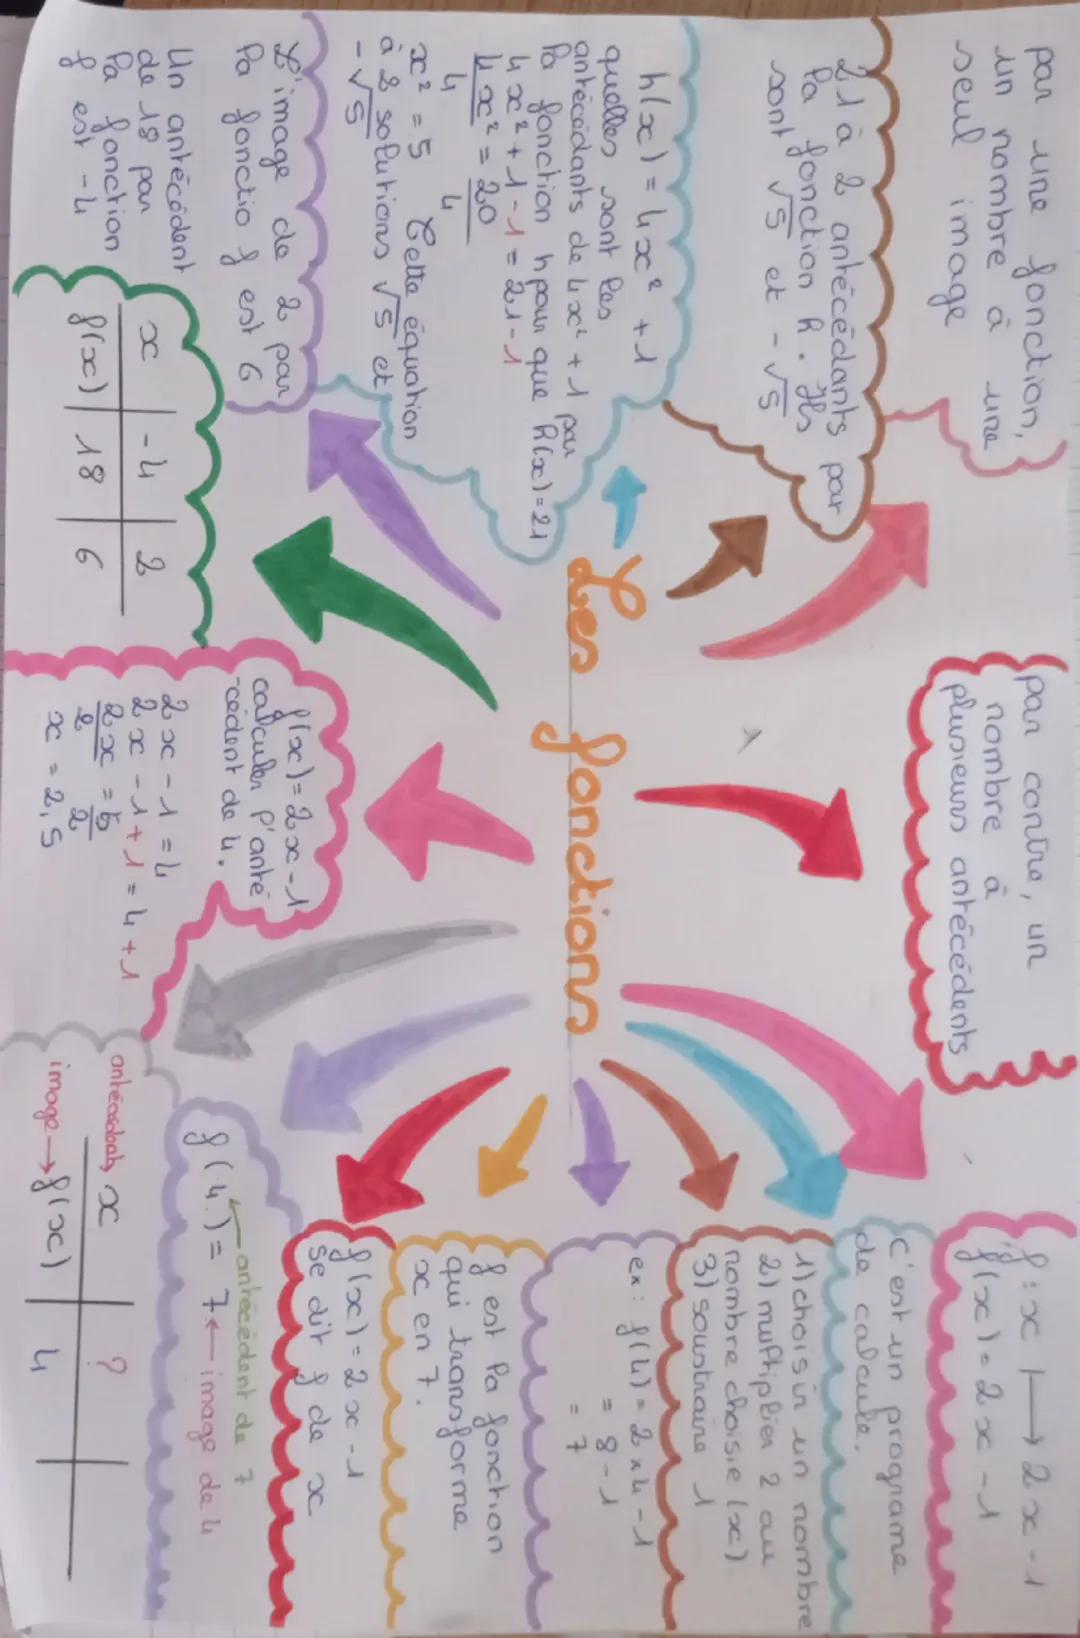 Les fonctions
f : x ⟼ 2x - 1
f(x) = 2x - 1
c'est un programe
de calcule.
1) choisir un nombre
2) multiplier 2 au
nombre choisie (x)
3) soustraire 1
ex : f(4) = 2 x 4 - 1
= 8 - 1
= 7
f est la fonction
qui transforme
x en 7.
f(x) = 2x - 1
se dit f de x
antécédent de 7
f(4) = 7 ← image de 4
antécédent, x | ? |
image → f(x) | 4 |
f(x) = 2x - 1
calculer l'anté
-cédent de 4.
2x - 1 = 4
2x - 1 + 1 = 4 + 1
2x = 5
2 2
x = 2,5
x | -4 | 2
f(x) | 18 | 6
L'image de 2 par
la fonctio f est 6
Un antécédent
de 18 par
la fonction
f est -4
h(x) = 4x² + 1
quelles sont les
antécédants de 4x² + 1 par
la fonction h pour que h(x) = 21
4x² + 1 - 1 = 21 - 1
4x² = 20
4 4
x² = 5 Cette équation
à 2 solutions √5 et
-√5
21 à 2 antécédants par
la fonction h. Ils
sont √5 et -√5
par une fonction,
un nombre à une
seul image
par contre, un
nombre à
plusieurs antécédents